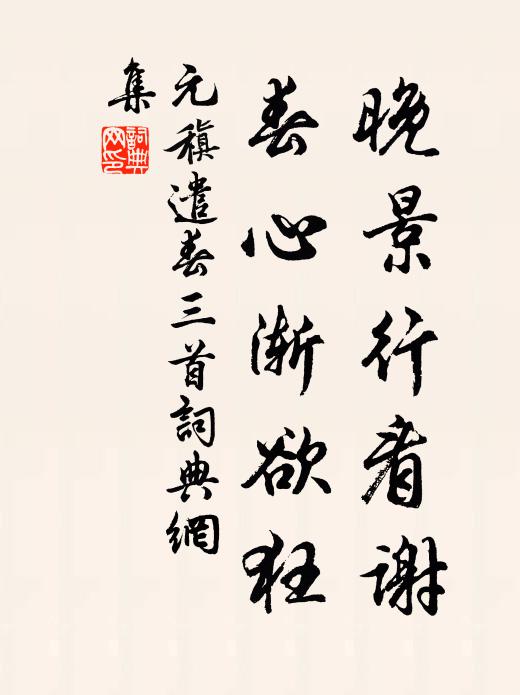 晚景行看谢
春心渐欲狂
元稹遣春三首詞典網
集
詞典网印